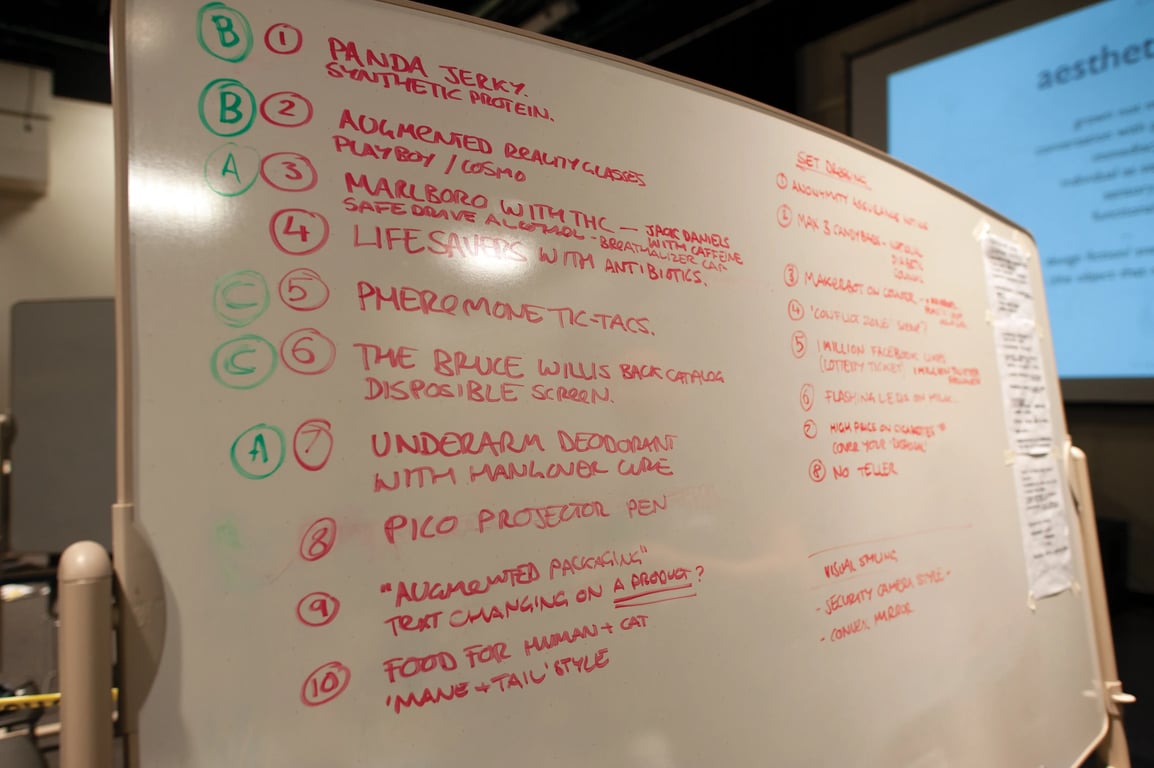 B 1 PANDA JERKY.
SYNTHETIC PROTEIN.
B 2 AUGMENTED REALITY GLASSES
PLAYBOY / COSMO
A 3 MARLBORO WITH THC — JACK DANIELS
WITH CAFFEINE
SAFE DRIVE ALCOHOL - BREATHALIZER CAP
4 LIFESAVERS WITH ANTIBIOTICS.
C 5 PHEROMONE TIC-TACS.
C 6 THE BRUCE WILLIS BACK CATALOG
DISPOSIBLE SCREEN.
A 7 UNDERARM DEODORANT
WITH HANGOVER CURE
8 PICO PROJECTOR PEN
9 "AUGMENTED PACKAGING"
TEXT CHANGING ON A PRODUCT?
10 FOOD FOR HUMAN + CAT
'MANE + TAIL' STYLE
SET DRESSING
1 ANONYMITY ASSURANCE NOTICE
2 MAX 3 CANDYBARS -
DIABETIC
3 MAKERBOT ON COUNTER -
4 "CONFLICT ZONE"
5 1 MILLION FACEBOOK LIKES
(LOTTERY TICKET) 1 MILLION TWITTER
FOLLOWERS
6 FLASHING LEDS ON MILK...
7 HIGH PRICE ON CIGARETTES
COVER YOUR
8 NO TELLER
VISUAL STYLING
- SECURITY CAMERA STYLE -
- CONVEX MIRROR
aesthet